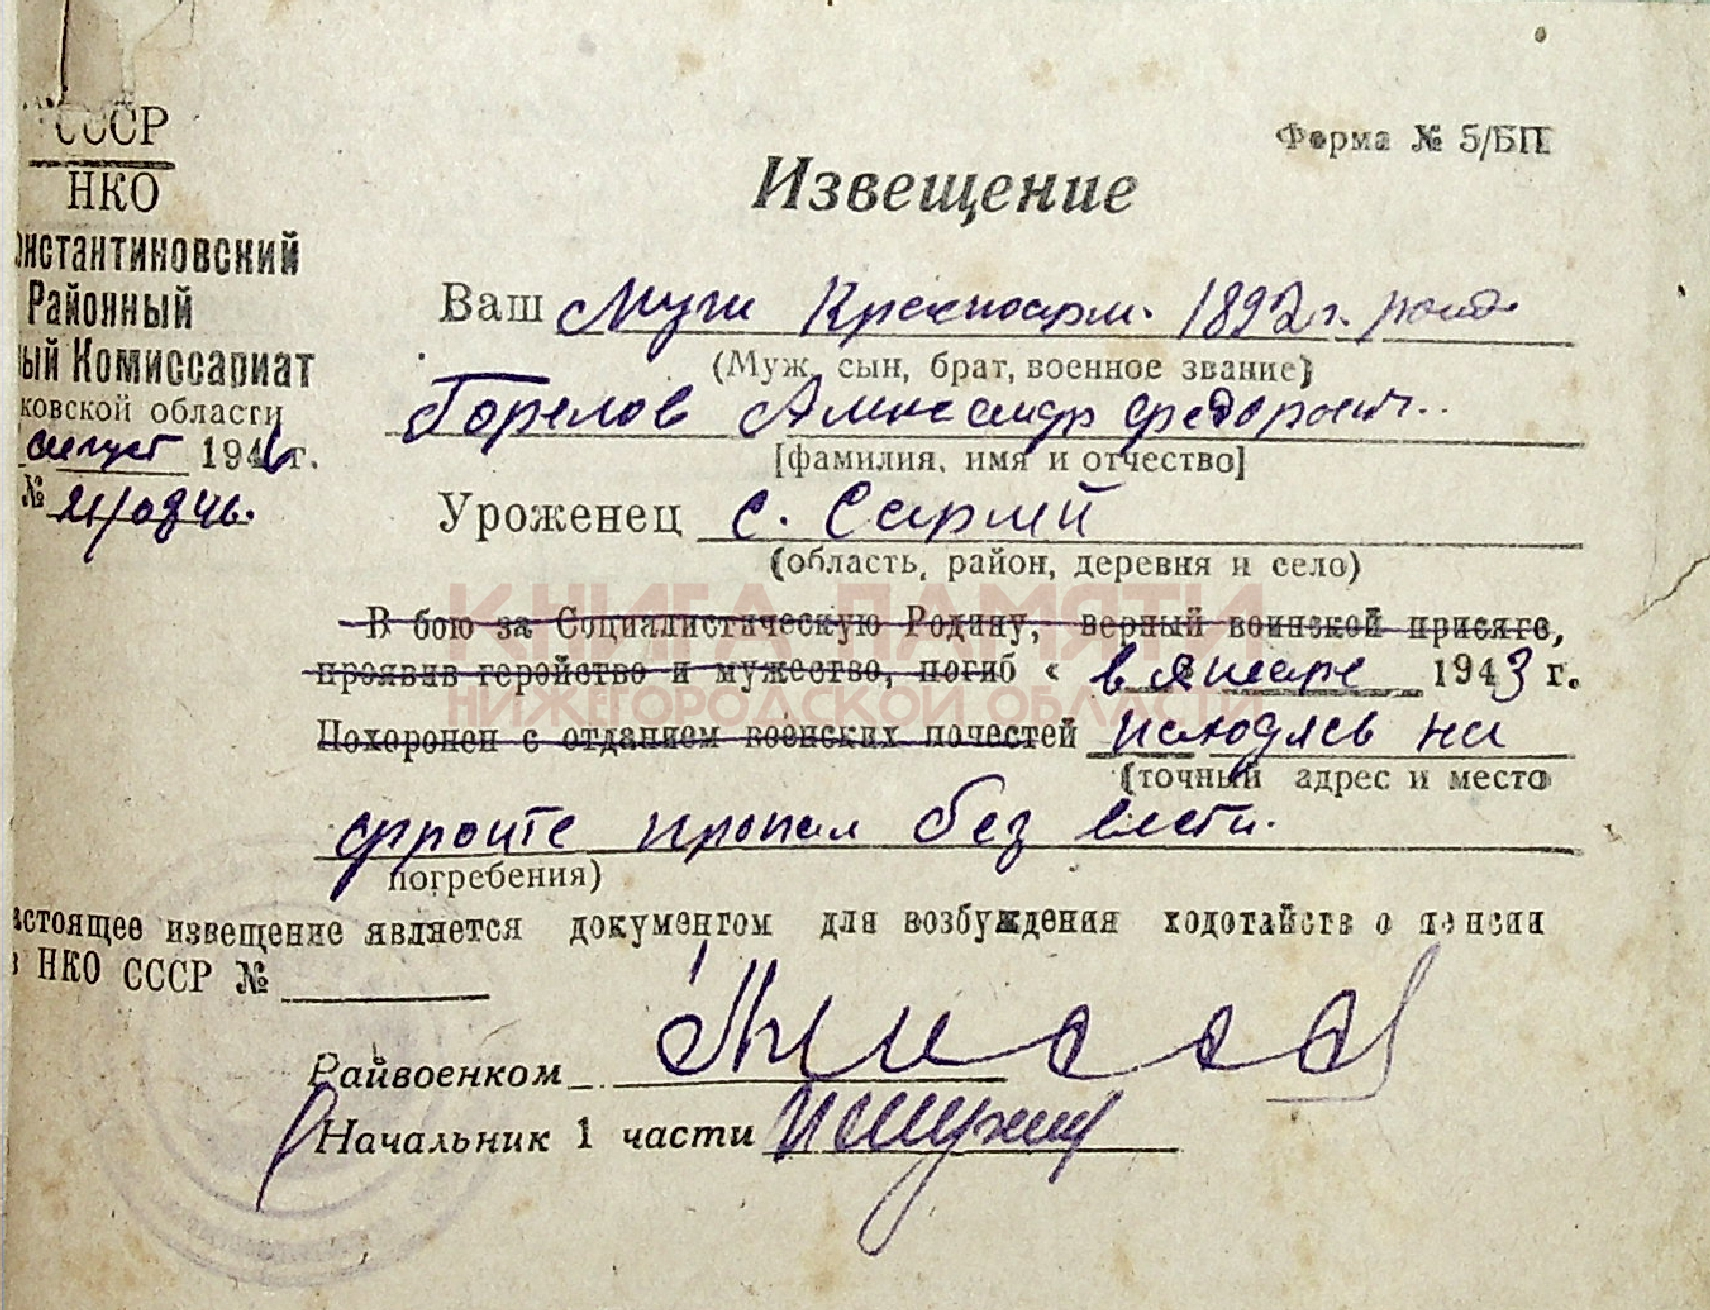 СССР
НКО
онстантиновский
Районный
ный Комиссариат
ковской области
август 1946 г.
№
Форма № 5/БП
Извещение
Ваш муж Красноарм. 1892 г. рожд
(Муж, сын, брат, военное звание)
Горелов Александр Федорович..
[фамилия, имя и отчество]
Уроженец с. Сарлей
(область, район, деревня и село)
В бою за Социалистическую Родину, верный воинской присяге,
проявив геройство и мужество, погиб « в январе 1943 г.
Похоронен с отданием воинских почестей находясь на
(точный адрес и место
фронте пропал без вести.
погребения)
астоящее извещение является документом для возбуждения ходотайств о пенсии
з НКО СССР №
Райвоенком
Начальник 1 части
КНИГА ПАМЯТИ
НИЖЕГОРОДСКОЙ ОБЛАСТИ